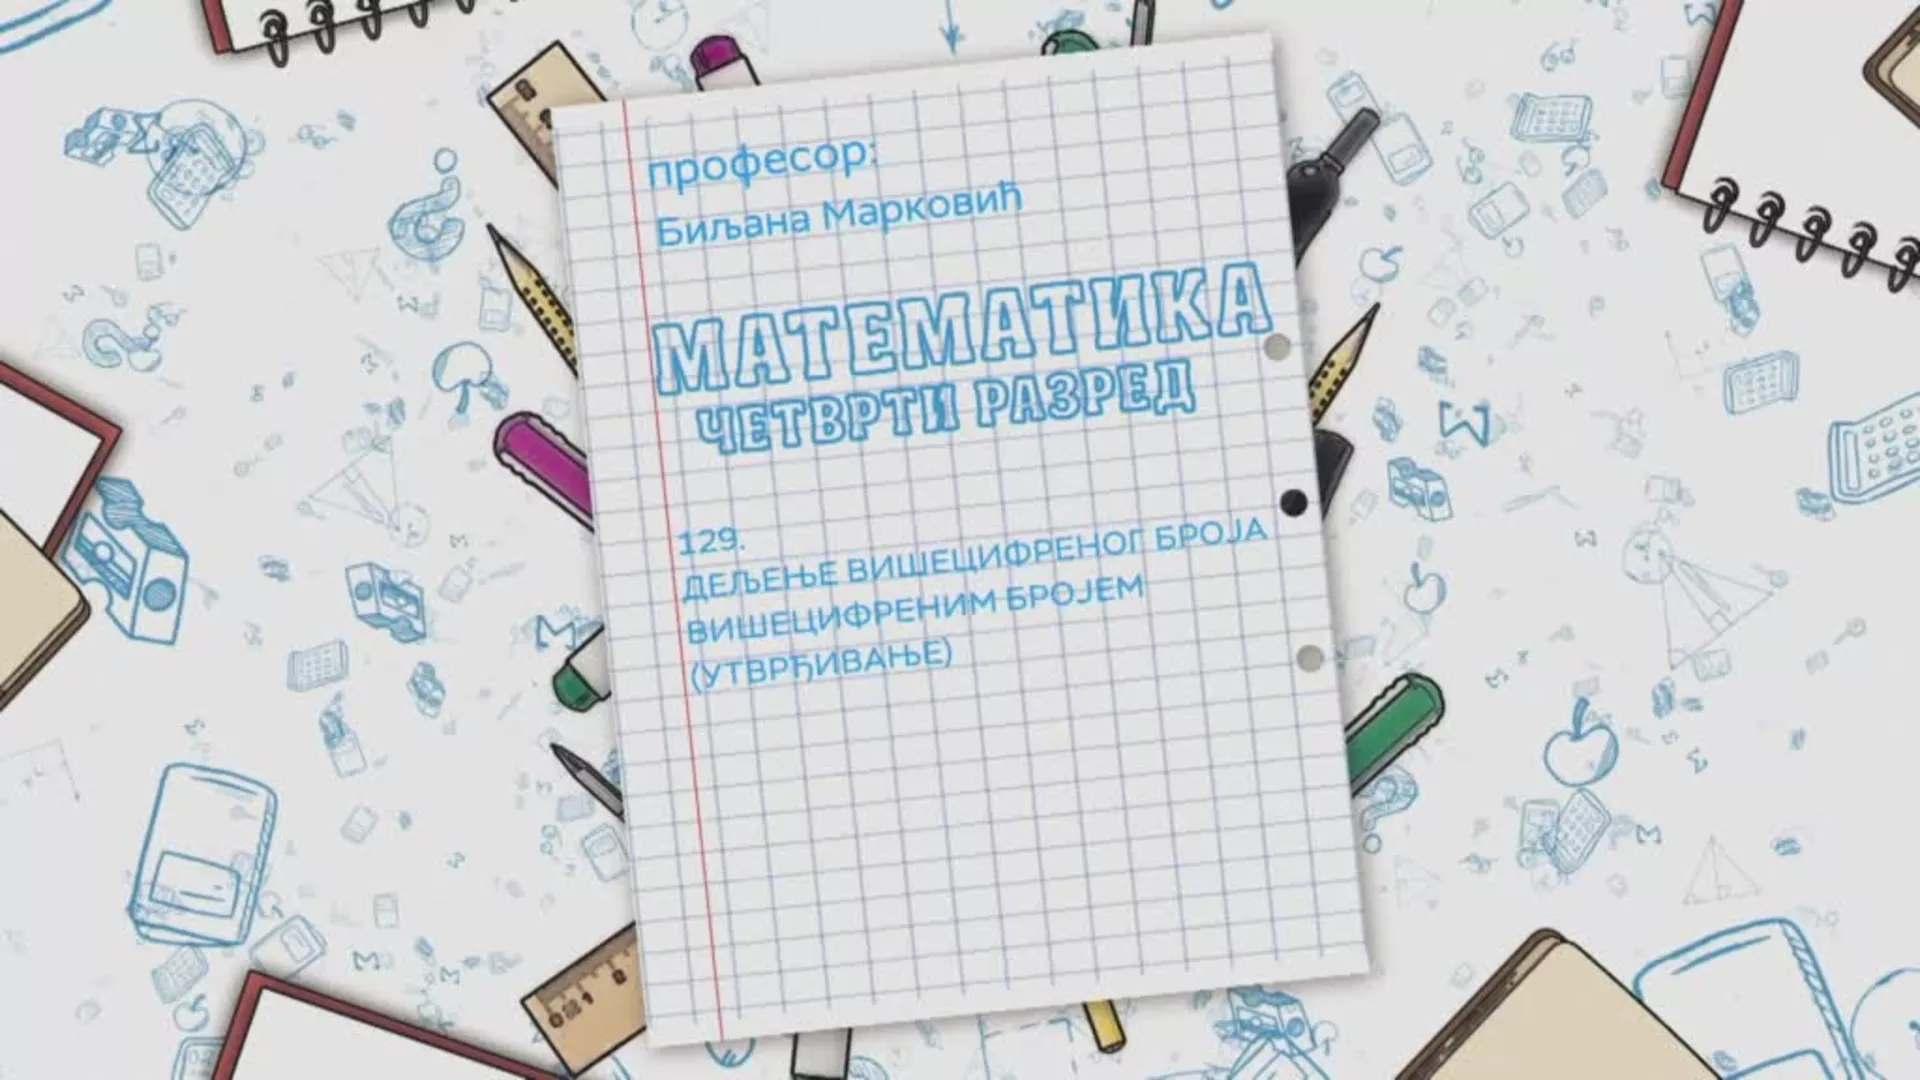 професор:
Биљана Марковић
МАТЕМАТИКА
ЧЕТВРТИ РАЗРЕД
129.
ДЕЉЕЊЕ ВИШЕЦИФРЕНОГ БРОЈА
ВИШЕЦИФРЕНИМ БРОЈЕМ
(УТВРЂИВАЊЕ)